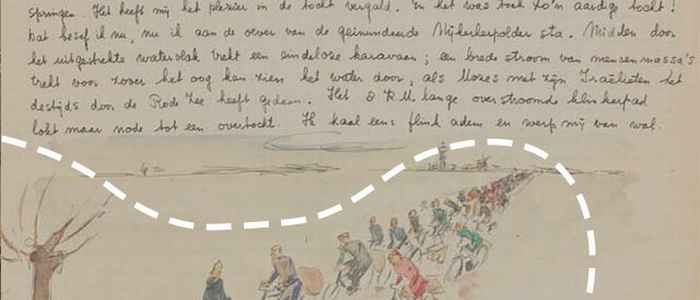 springen. Het heeft mij het plezier in de tocht vergald. En het was toch zo'n aardige tocht!
Dat besef ik nu, nu ik aan de oever van de geïnundeerde Nijkerkerpolder sta. Midden door
het uitgestrekte watervlak trekt een eindeloze karavaan; een brede stroom van mensenmassa's
trekt voor zover het oog kan zien het water door, als Mozes met zijn Israëlieten het
destijds door de Rode Zee heeft gedaan. Het 2 K.M. lange overstroomde klinkerpad
lokt maar node tot een overtocht. Ik haal eens flink adem en werp mij van wal.